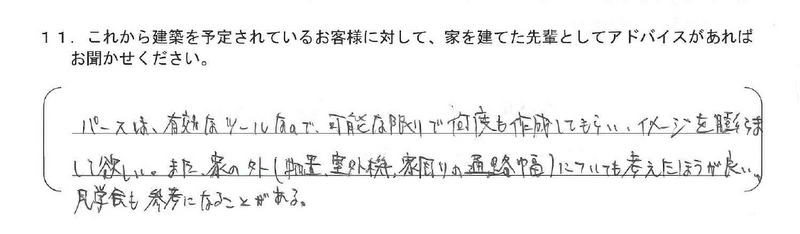 11．これから建築を予定されているお客様に対して、家を建てた先輩としてアドバイスがあれば
お聞かせください。
パースは、有効なツールなので、可能な限りで何度も作成してもらい、イメージを膨らま
して欲しい。また、家の外(物置、室外機、家周りの通路幅)についても考えたほうが良い。
見学会も参考になることがある。